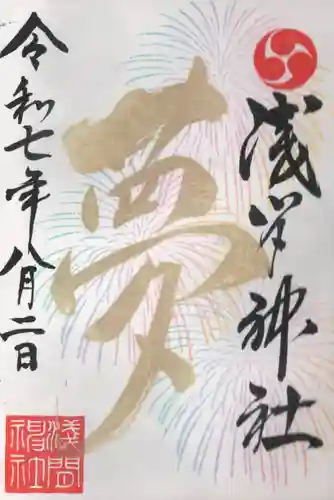 浅間神社
夢
令和七年八月二日
淺間
神社